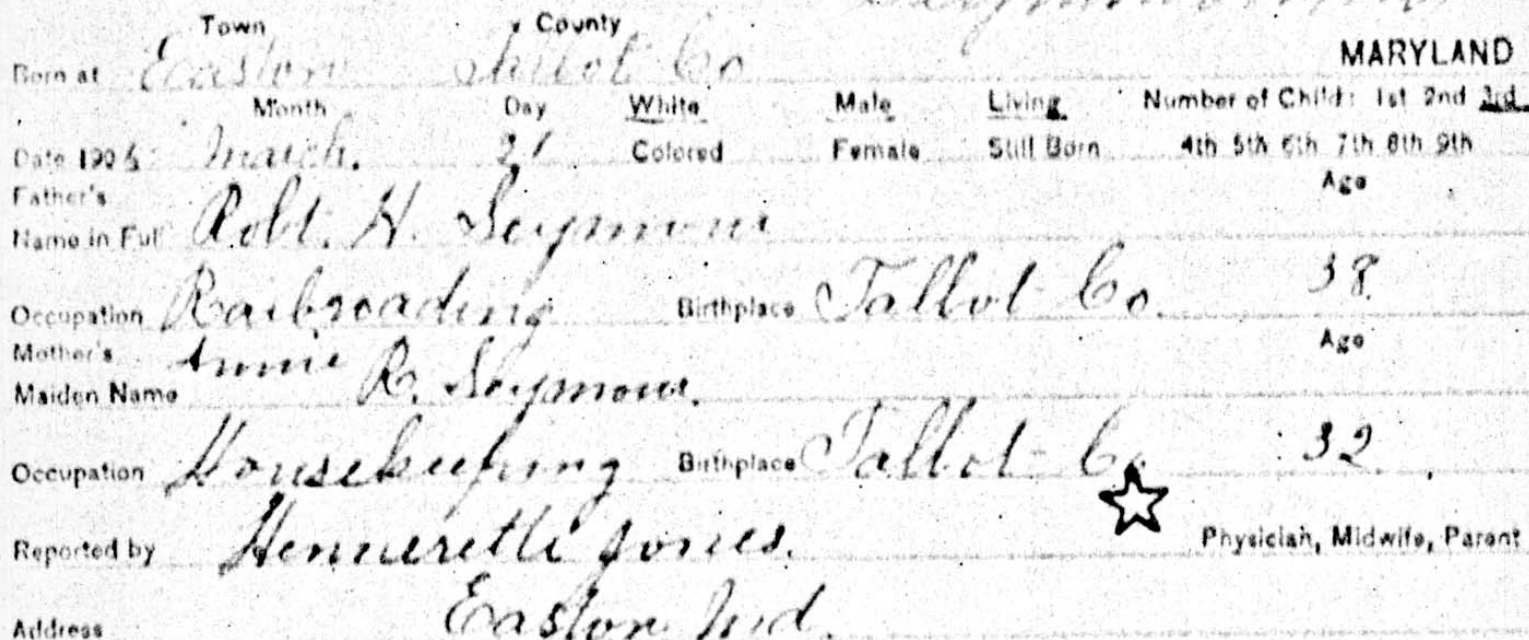 Town County
Born at Easton Talbot Co MARYLAND
Month Day White Male Living Number of Child: 1st 2nd 3rd
Date 190 March. 21 Colored Female Still Born 4th 5th 6th 7th 8th 9th
Father's Age
Name in Full Robt. H. Seymour
Occupation Railroading Birthplace Talbot Co. 38
Mother's Annie Age
Maiden Name R. Seymour.
Occupation Housekeeping Birthplace Talbot Co. 32
Reported by Hennerette Jones. Physician, Midwife, Parent
Address Easton Md.